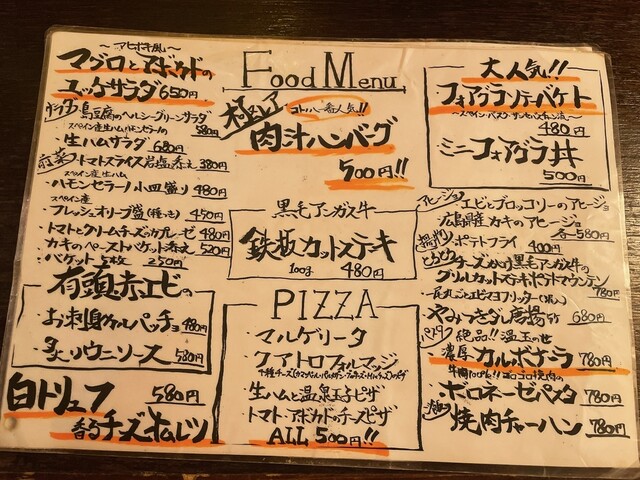 〜アヒポキ風〜
マグロとアボカドの
ユッケサラダ 650円
島豆腐のヘルシーグリーンサラダ
580円
スペイン産生ハムハモンセラーノの
生ハムサラダ 680円
前菜
トマトスライス岩塩添え 380円
スペイン産生ハム
・ハモンセラーノ小皿盛り 480円
スペイン産
・フレッシュオリーブ盛(種つき) 450円
・トマトとクリームチーズのカプレーゼ 480円
・カキのペーストバケット添え 520円
・バケット 5枚 250円
有頭赤エビの
・お刺身カルパッチョ 480円
・炙りウニソース 580円
白トリュフ 580円
香るチーズオムレツ
Food Menu
極レア
一番人気!!
肉汁ハンバーグ
500円!!
黒毛アンガス牛
鉄板カットステーキ
100g 480円
PIZZA
・マルゲリータ
・クアトロフォルマッジ
・生ハムと温泉玉子ピザ
・トマトアボカドのチーズピザ
ALL 500円!!
大人気!!
フォアグラonザバケット
480円
ミニフォアグラ丼
500円
アヒージョ
・エビとブロッコリーのアヒージョ
・広島県産カキのアヒージョ
各580円
揚物
・ポテトフライ 400円
・とろとろチーズがけ黒毛アンガス牛の
グリルカットステーキポテトマウンテン
780円
・やみつき鶏唐揚 680円
絶品!!温玉のせ
・濃厚カルボナーラ 780円
牛肉100%!!ゴロゴロ挽肉の
・ボロネーゼパスタ 780円
・焼肉チャーハン 780円